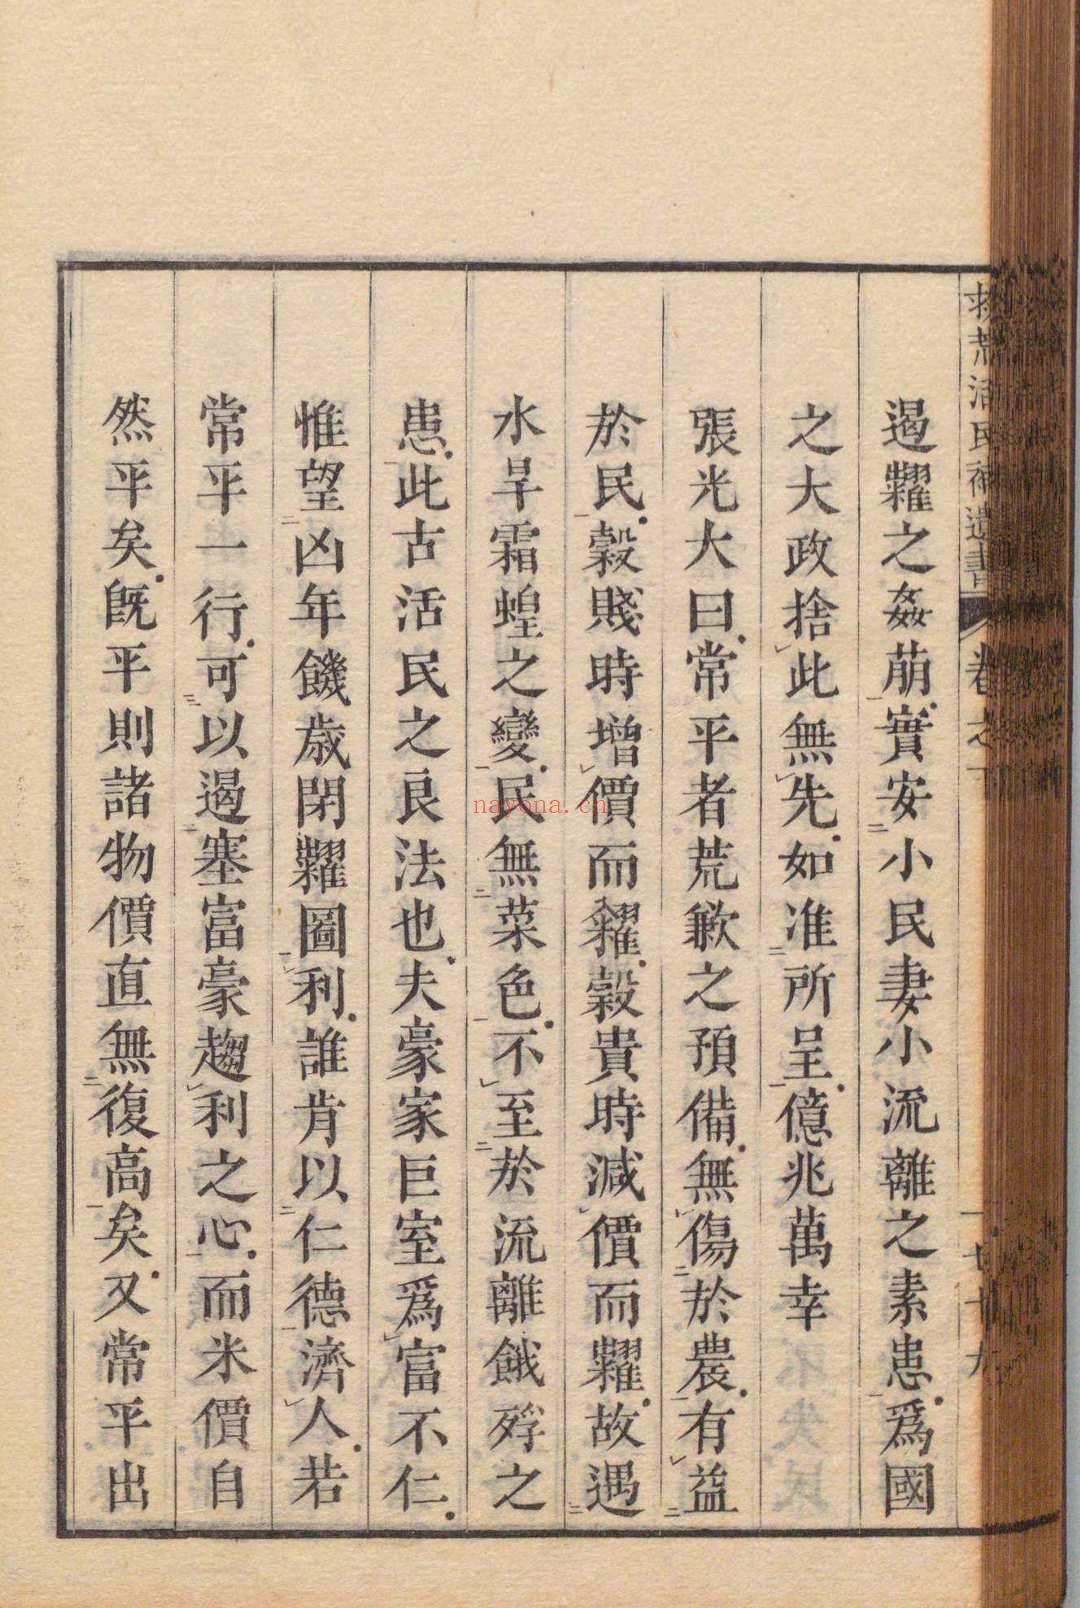 救荒活民補遺書 卷之
遏糶之姦萠實安小民妻小流離之素患爲國
之大政捨此無先如准所呈億兆萬幸
張光大曰常平者荒歉之預備無傷於農有益
於民穀賤時增價而糴穀貴時減價而糶故遇
水旱霜蝗之變民無菜色不至於流離餓殍之
患此古活民之良法也夫豪家巨室爲富不仁
惟望凶年饑歲閉糶圖利誰肯以仁德濟人若
常平一行可以遏塞富豪趨利之心而米價自
然平矣旣平則諸物價直無復高矣又常平出
nayona.cn